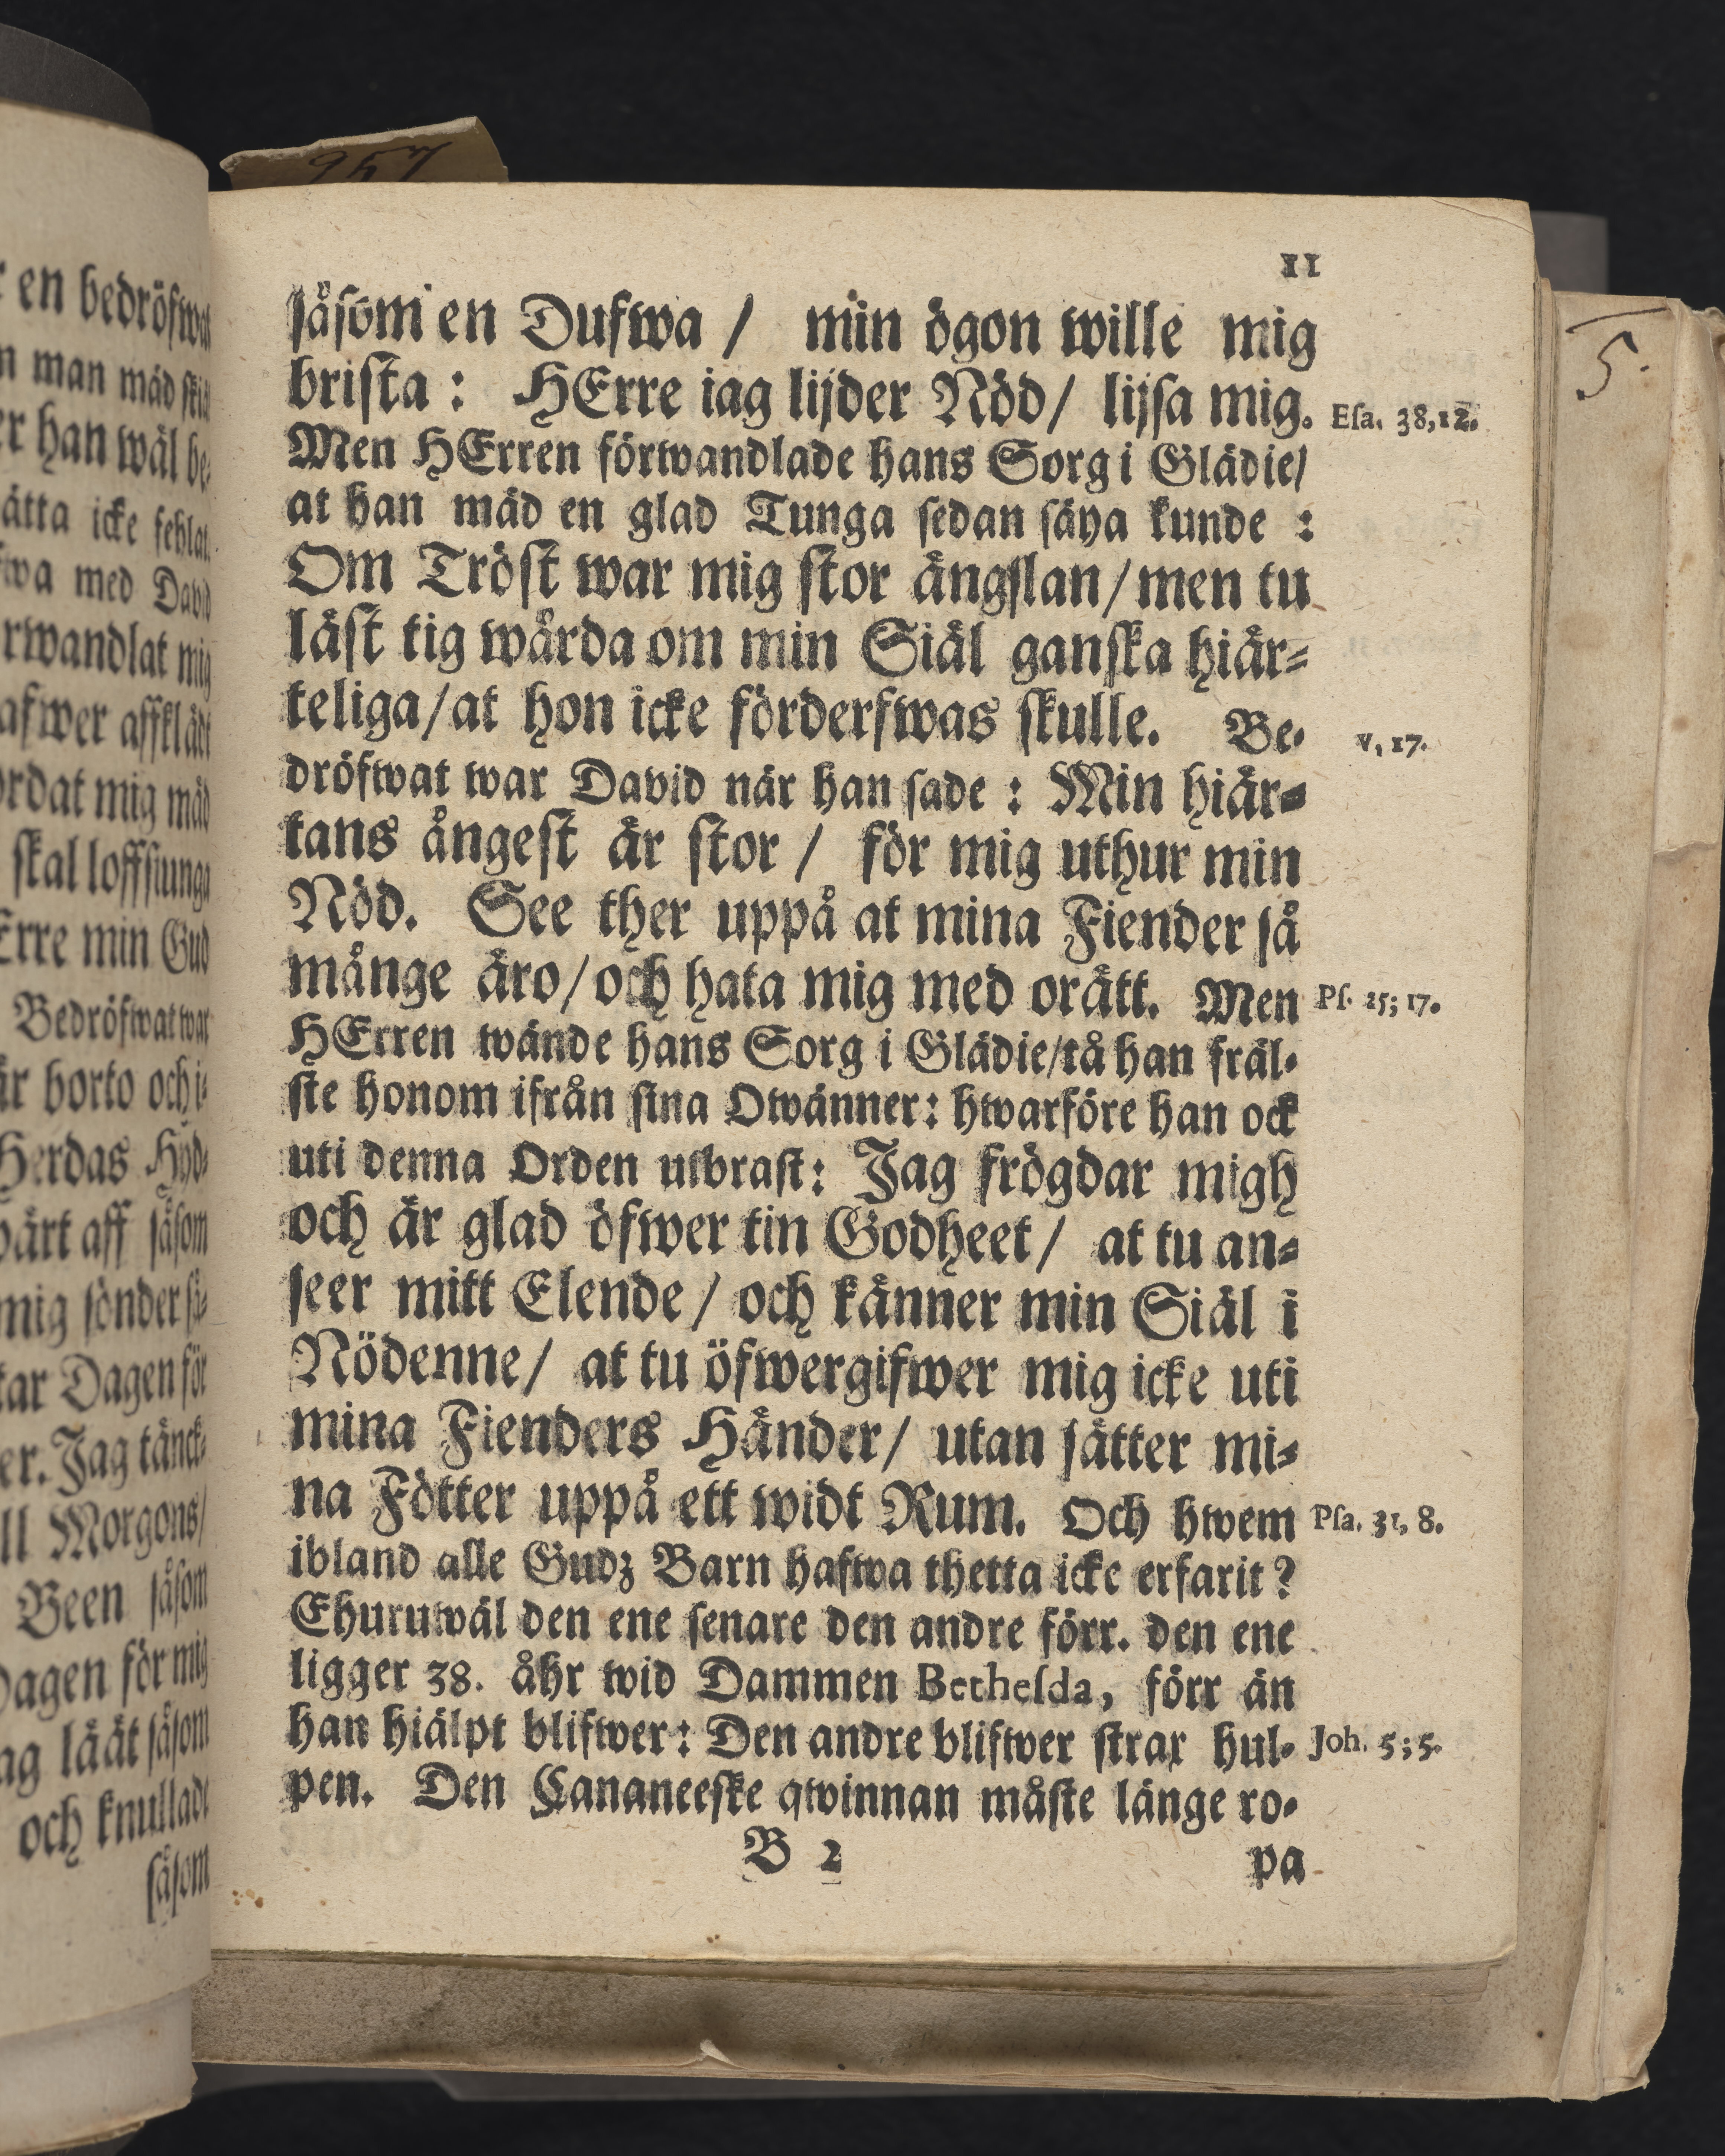 11
såsom en Dufwa / min ögon wille mig
brista : HErre iag lijder Nöd/ lijsa mig. Esa. 38,12.
Men HErren förwandlade hans Sorg i Glädie/
at han mäd en glad Tunga sedan säya kunde :
Om Tröst war mig stor ångslan/men tu
läst tig wårda om min Siäl ganska hiär=
teliga/at hon icke förderfwas skulle. Be= v. 17.
dröfwat war David när han sade : Min hiär=
tans ångest är stor / för mig uthur min
Nöd. See ther uppå at mina Fiender så
månge äro/och hata mig med orätt. Men Ps. 25; 17.
HErren wände hans Sorg i Glädie/tå han fräl=
ste honom ifrån sina Owänner: hwarföre han ock
uti denna Orden utbrast: Jag frögdar migh
och är glad öfwer tin Godheet/ at tu an=
seer mitt Elende/ och känner min Siäl i
Nödenne/ at tu öfwergifwer mig icke uti
mina Fienders Händer/ utan sätter mi=
na Fötter uppå ett widt Rum. Och hwem Psa. 31, 8.
ibland alle Gudz Barn hafwa thetta icke erfarit?
Ehuruwäl den ene senare den andre förr. den ene
ligger 38. åhr wid Dammen Bethesda, förr än
han hiälpt blifwer: Den andre blifwer strax hul= Joh. 5;5.
pen. Den Cananeeske qwinnan måste länge ro=
B 2 pa
en bedröfwat
man mäd
er han wäl be=
ätta icke fehlat.
med David
rwandlat mig
afwer affklädt
ordat mig mäd
skal loffsiunga
Erre min Gud
Bedröfwat war
är borto och i=
Herdas Hyd=
aff såsom
mig sönder så=
tar Dagen för
er. Jag tänck=
ll Morgons/
Been såsom
Dagen för mig
ag läät såsom
och knulladt
såsom
957
5.